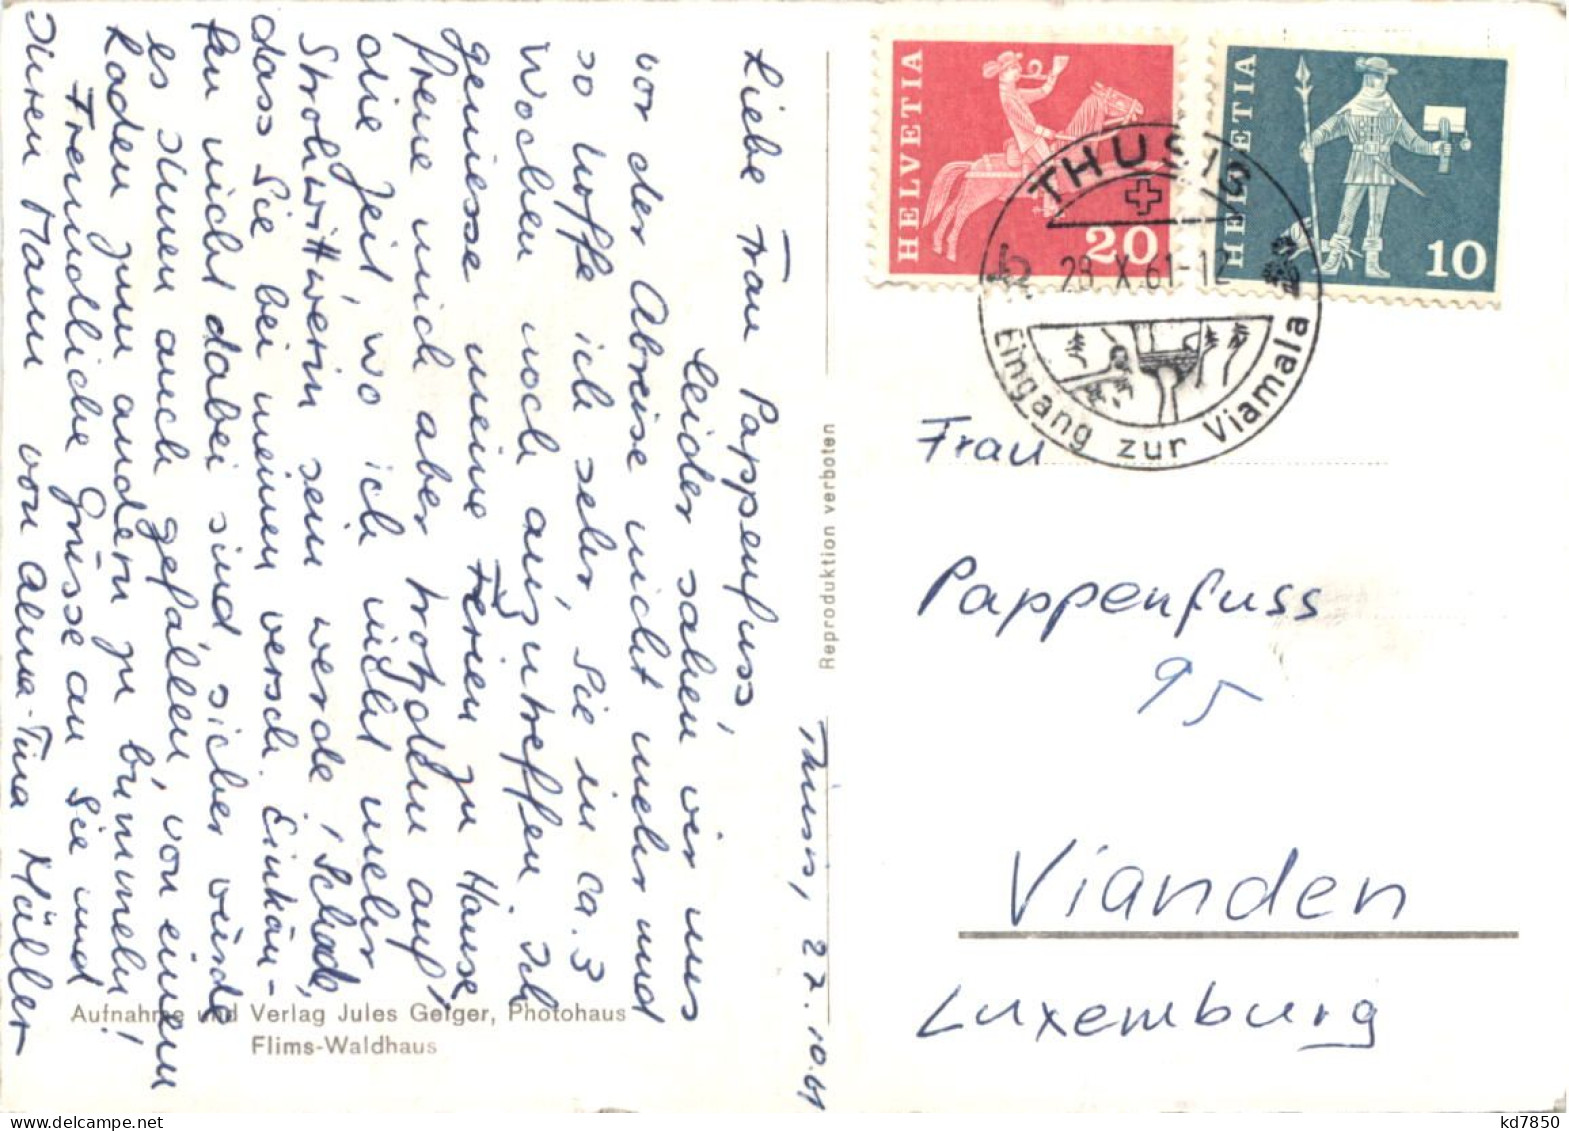 Thusis, 27.10.61
Liebe Frau Pappenfuss,
Leider sahen wir uns
vor der Abreise nicht mehr und
so hoffe ich sehr, Sie in ca. 3
Wochen noch anzutreffen. Ich
geniesse meine Ferien zu Hause,
freue mich aber trotzdem auf
die Zeit, wo ich nicht mehr
Strohwittwerin sein werde, Schade,
dass Sie bei meinen versch. Einkäu-
fen nicht dabei sind, sicher würde
es Ihnen auch gefallen, von einem
Laden zum andern zu bummeln!
Freundliche Grüsse an Sie und
Ihren Mann von Alma-Tina Müller
Aufnahme und Verlag Jules Geiger, Photohaus
Flims-Waldhaus
Reproduktion verboten
HELVETIA
20
HELVETIA
10
THUSIS
28.X.61-12
Eingang zur Viamala
Frau
Pappenfuss
95
Vianden
Luxemburg
kd7850